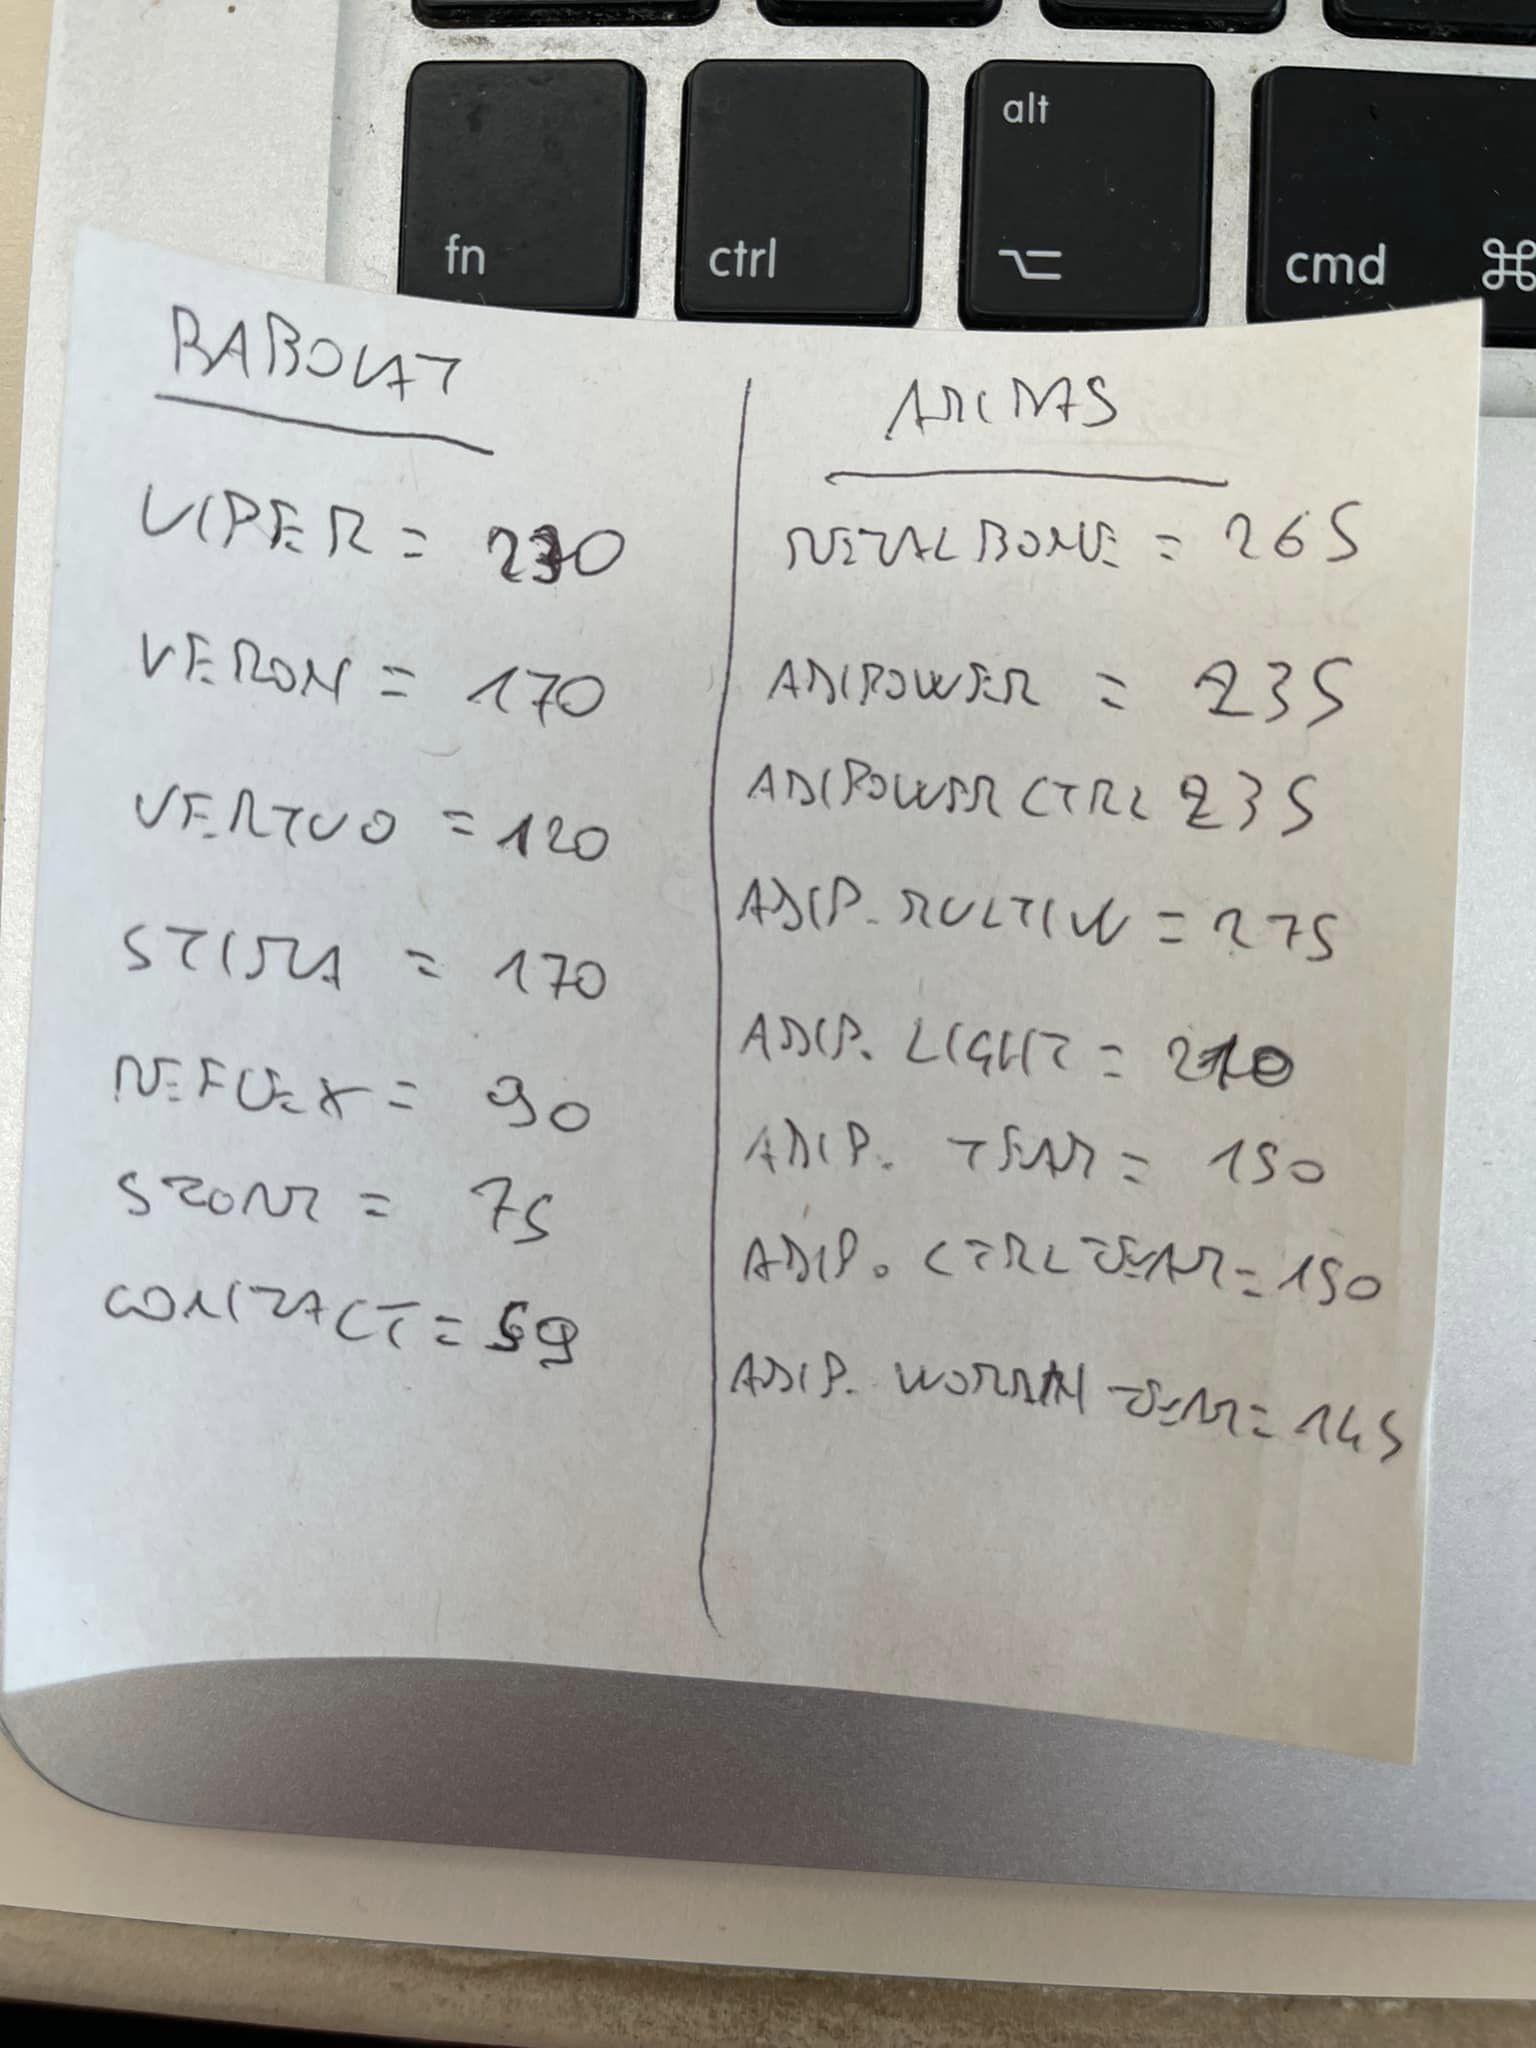 fn
ctrl
alt
cmd ⌘
BABOLAT
VIPER = 230
VERON = 170
VERTUO = 120
STIMA = 170
REFLEX = 90
STORM = 75
CONTACT = 59
ADIDAS
METALBONE = 265
ADIPOWER = 235
ADIPOWER CTRL 235
ADIP. MULTIW = 275
ADIP. LIGHT = 210
ADIP. TEAM = 150
ADIP. CTRL TEAM = 150
ADIP. WOMAN TEAM = 145